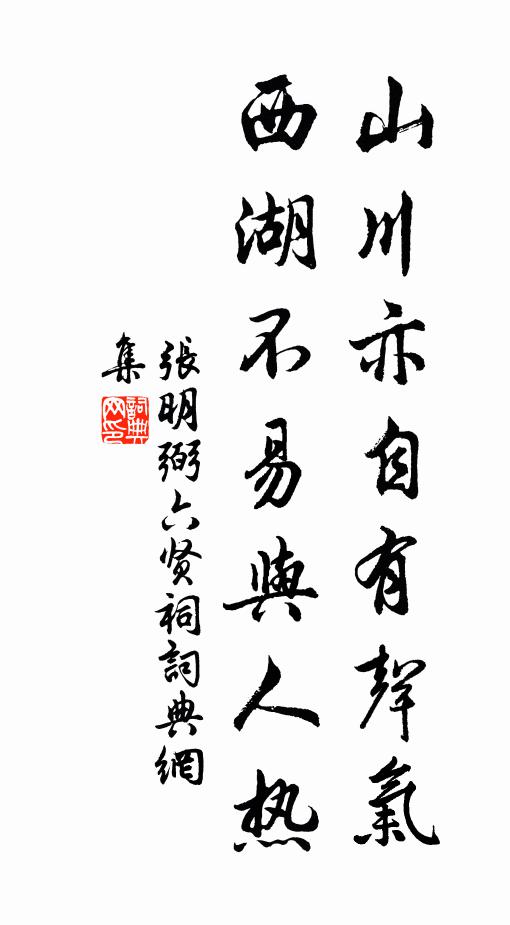 山川亦自有聲氣
西湖不易與人热
張明弼六贤祠詞典網
集
詞典网印